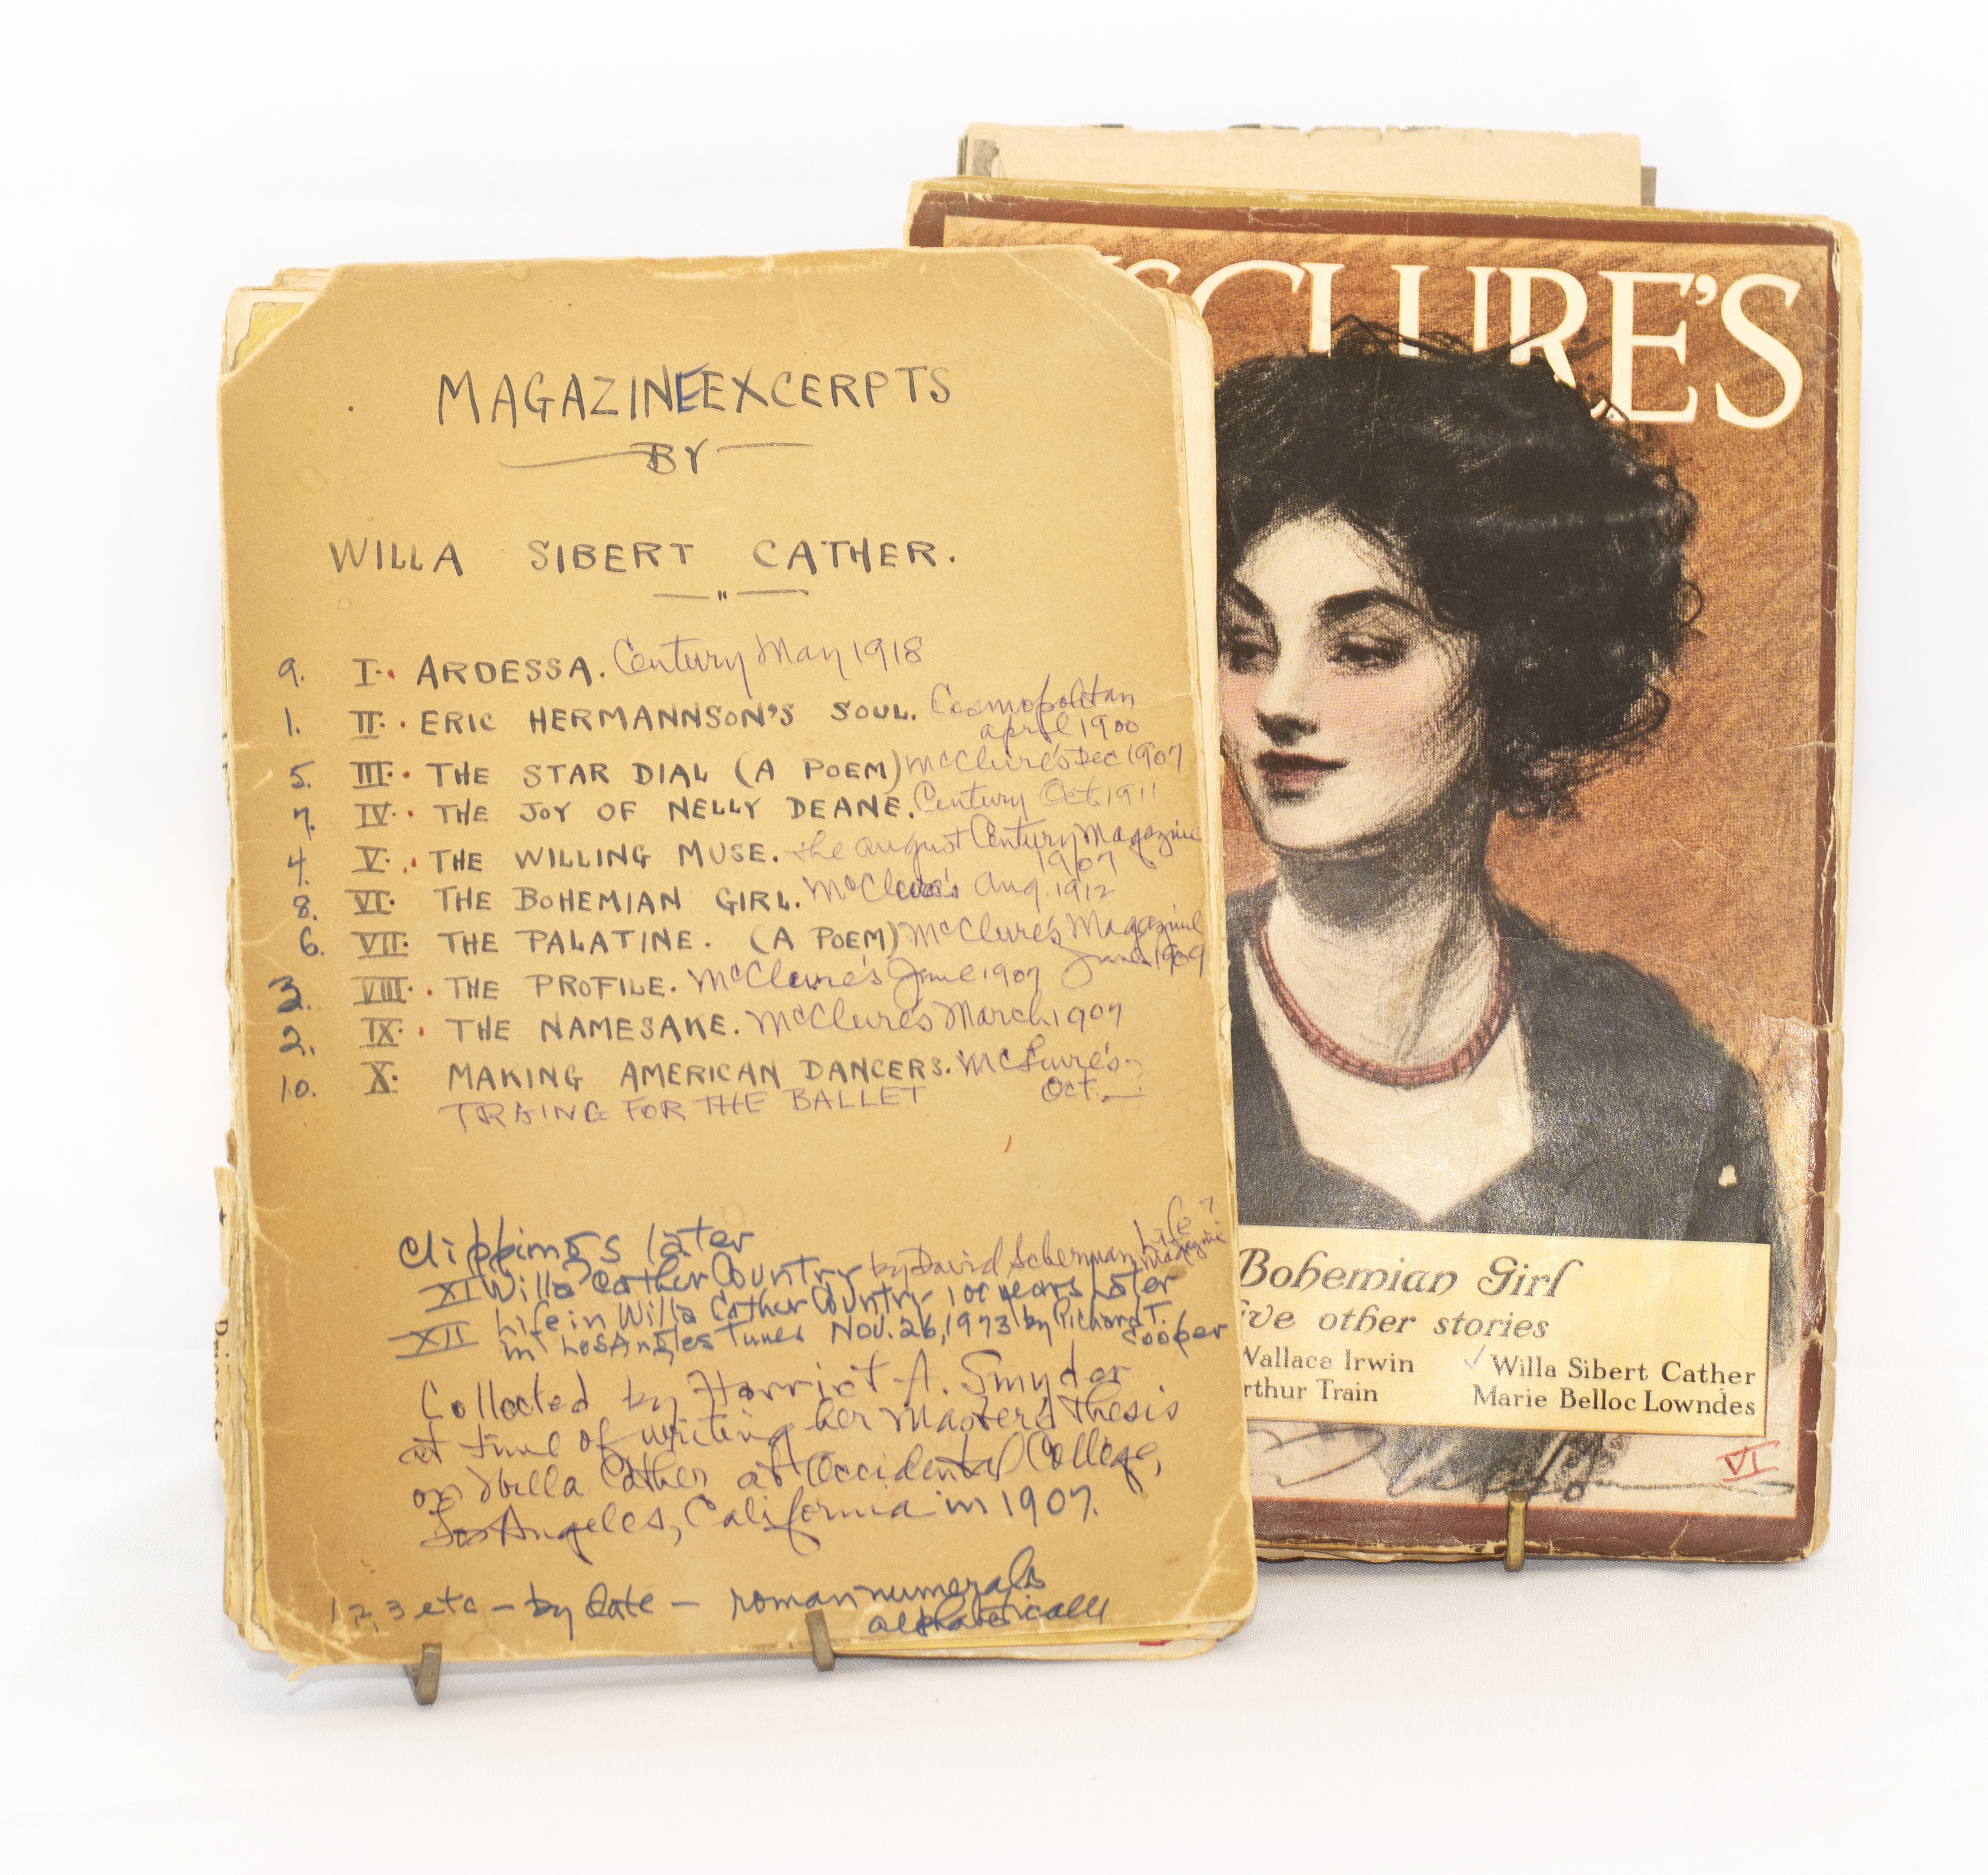 MAGAZINE EXCERPTS
BY
WILLA SIBERT CATHER.
9. I. ARDESSA. Century May 1918
1. II. ERIC HERMANNSON'S SOUL. Cosmopolitan
april 1900
5. III. THE STAR DIAL (A POEM) McClure's Dec 1907
7. IV. THE JOY OF NELLY DEANE. Century Oct. 1911
4. V. THE WILLING MUSE. the august Century Magazine
1907
8. VI. THE BOHEMIAN GIRL. McClure's Aug. 1912
6. VII. THE PALATINE. (A POEM) McClure's Magazine
June 1909
3. VIII. THE PROFILE. McClure's June 1907
2. IX. THE NAMESAKE. McClure's March 1907
10. X. MAKING AMERICAN DANCERS. McClure's
Oct.
TRAING FOR THE BALLET
Clippings later
XI Willa Cather Country by David Scherman Life?
Magazine
XII Life in Willa Cather Country 100 years Later
in LosAngles Times Nov. 26, 1973 by Richard T.
Cooper
Collected by Harriet A. Snyder
at time of writing her Master's Thesis
on Willa Cather at Occidental College,
Los Angeles, California in 1907.
1, 2, 3 etc - by date - roman numerals
alphabetically
CLURE'S
Bohemian Girl
ive other stories
Wallace Irwin ✓ Willa Sibert Cather
rthur Train Marie Belloc Lowndes
VI